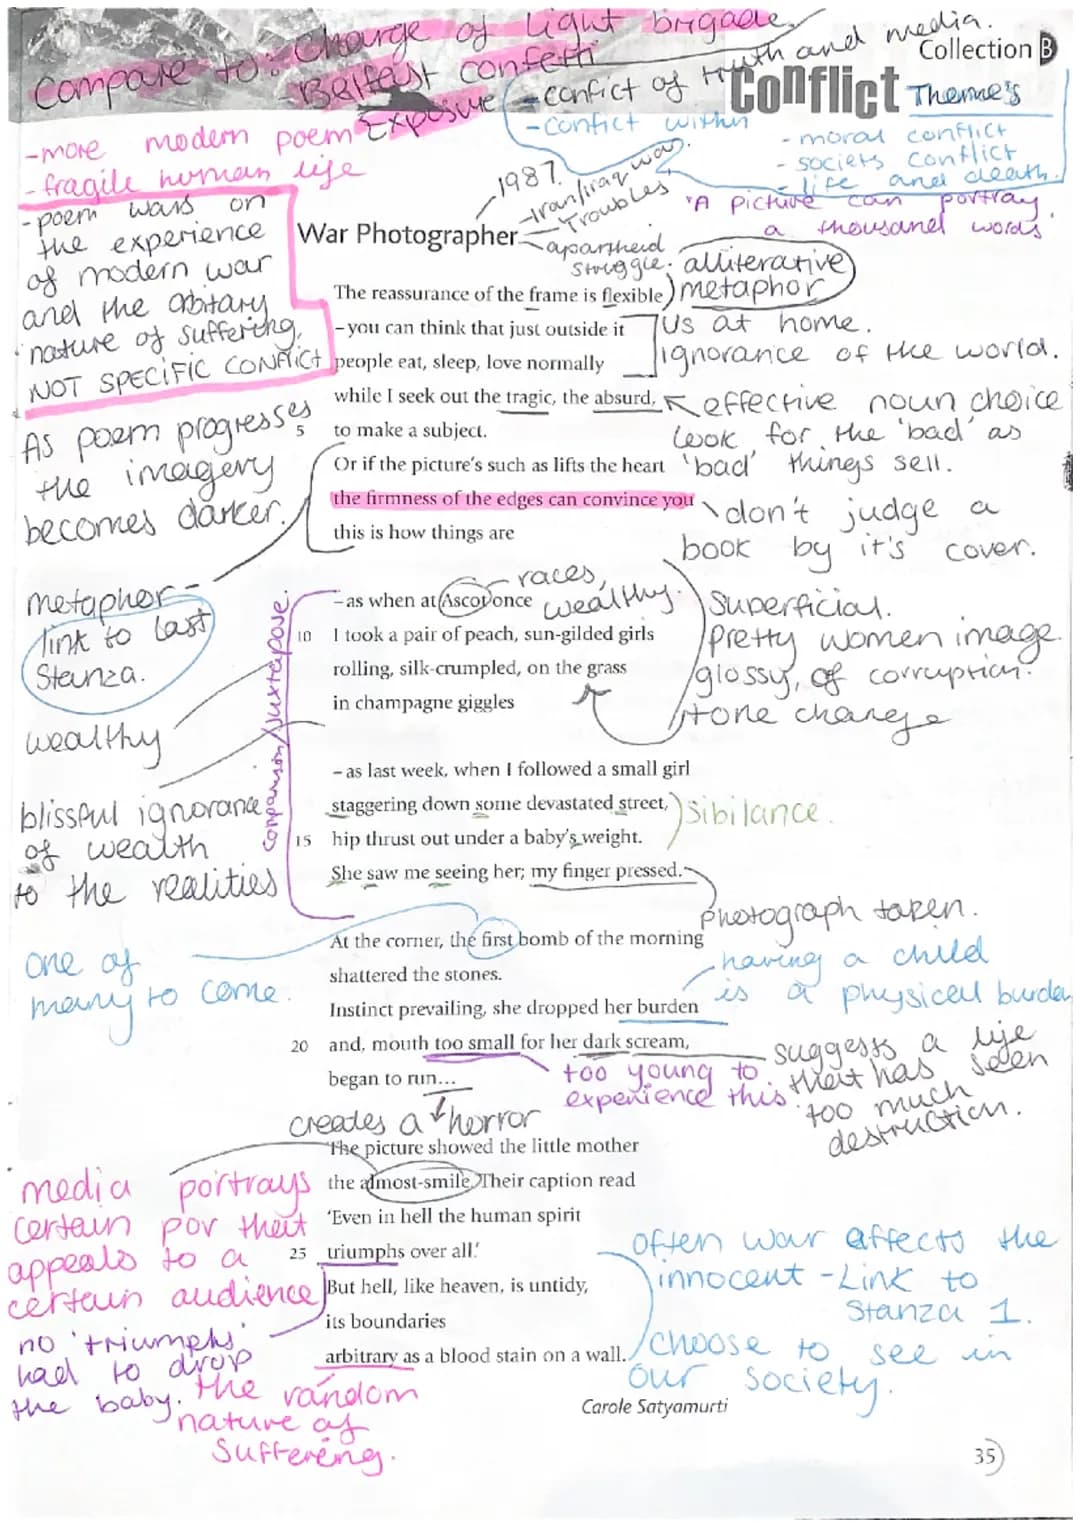 Compare to: Charge of Light brigade.
Belfast confetti
Exposure
- conflict of truth and media.
- conflict within
Collection B
Conflict
Theme's
- moral conflict
- society conflict
- life and death.
- more modern poem
- fragile human life
- poem was on
the experience
of modern war
and the arbitary
nature of suffering.
NOT SPECIFIC CONFLICT
1987.
- Iran/Iraq war.
- Troubles
- apartheid
struggle.
"A picture can portray
a thousand words
War Photographer
alliterative
metaphor
The reassurance of the frame is flexible
– you can think that just outside it
people eat, sleep, love normally
while I seek out the tragic, the absurd,
5 to make a subject.
Or if the picture's such as lifts the heart
the firmness of the edges can convince you
this is how things are
us at home.
ignorance of the world.
effective noun choice
look for the 'bad' as
'bad' things sell.
don't judge a
book by it's cover.
As poem progresses
the imagery
becomes darker.
metaphor -
link to last
Stanza.
wealthy
blissful ignorance
of wealth
to the realities
comparison/juxtapose.
races,
wealthy.
– as when at Ascot once
10 I took a pair of peach, sun-gilded girls
rolling, silk-crumpled, on the grass
in champagne giggles
Superficial.
Pretty women image.
glossy, of corruption.
tone change
– as last week, when I followed a small girl
staggering down some devastated street,
15 hip thrust out under a baby's weight.
She saw me seeing her; my finger pressed.
sibilance.
photograph taken.
One of
many to come.
At the corner, the first bomb of the morning
shattered the stones.
Instinct prevailing, she dropped her burden
20 and, mouth too small for her dark scream,
began to run...
having a child
is a physical burden
too young to
experience this.
suggests a life
that has seen
too much
destruction.
creates a horror
The picture showed the little mother
the almost-smile. Their caption read
'Even in hell the human spirit
25 triumphs over all.'
But hell, like heaven, is untidy,
its boundaries
arbitrary as a blood stain on a wall.
media portrays
certain pov that
appeals to a
certain audience
no 'triumphs'
had to drop
the baby.
the random
nature of
suffering.
often war affects the
innocent - Link to
Stanza 1.
choose to see in
our society.
Carole Satyamurti
35